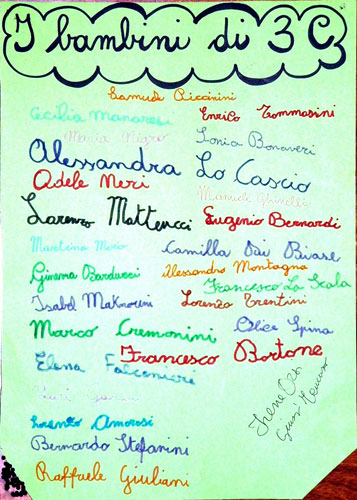 I bambini di 3 C
Samuele Piccinini
Cecilia Manaresi Enrico Tommasini
Maria Negro Sonia Bonaveri
Alessandra Lo Cascio
Adele Neri Manuele
Lorenzo Matteucci Eugenio Bernardi
Martina Camilla Dai
Ginevra Barducci Alessandro Montagna
Francesco La Scala
Isabel Lorenzo Trentini
Marco Cremonini Alice Spina
Francesco Bortone
Elena Falconieri
Lorenzo Amorosi
Irene
Bernardo Stefanini
Raffaele Giuliani